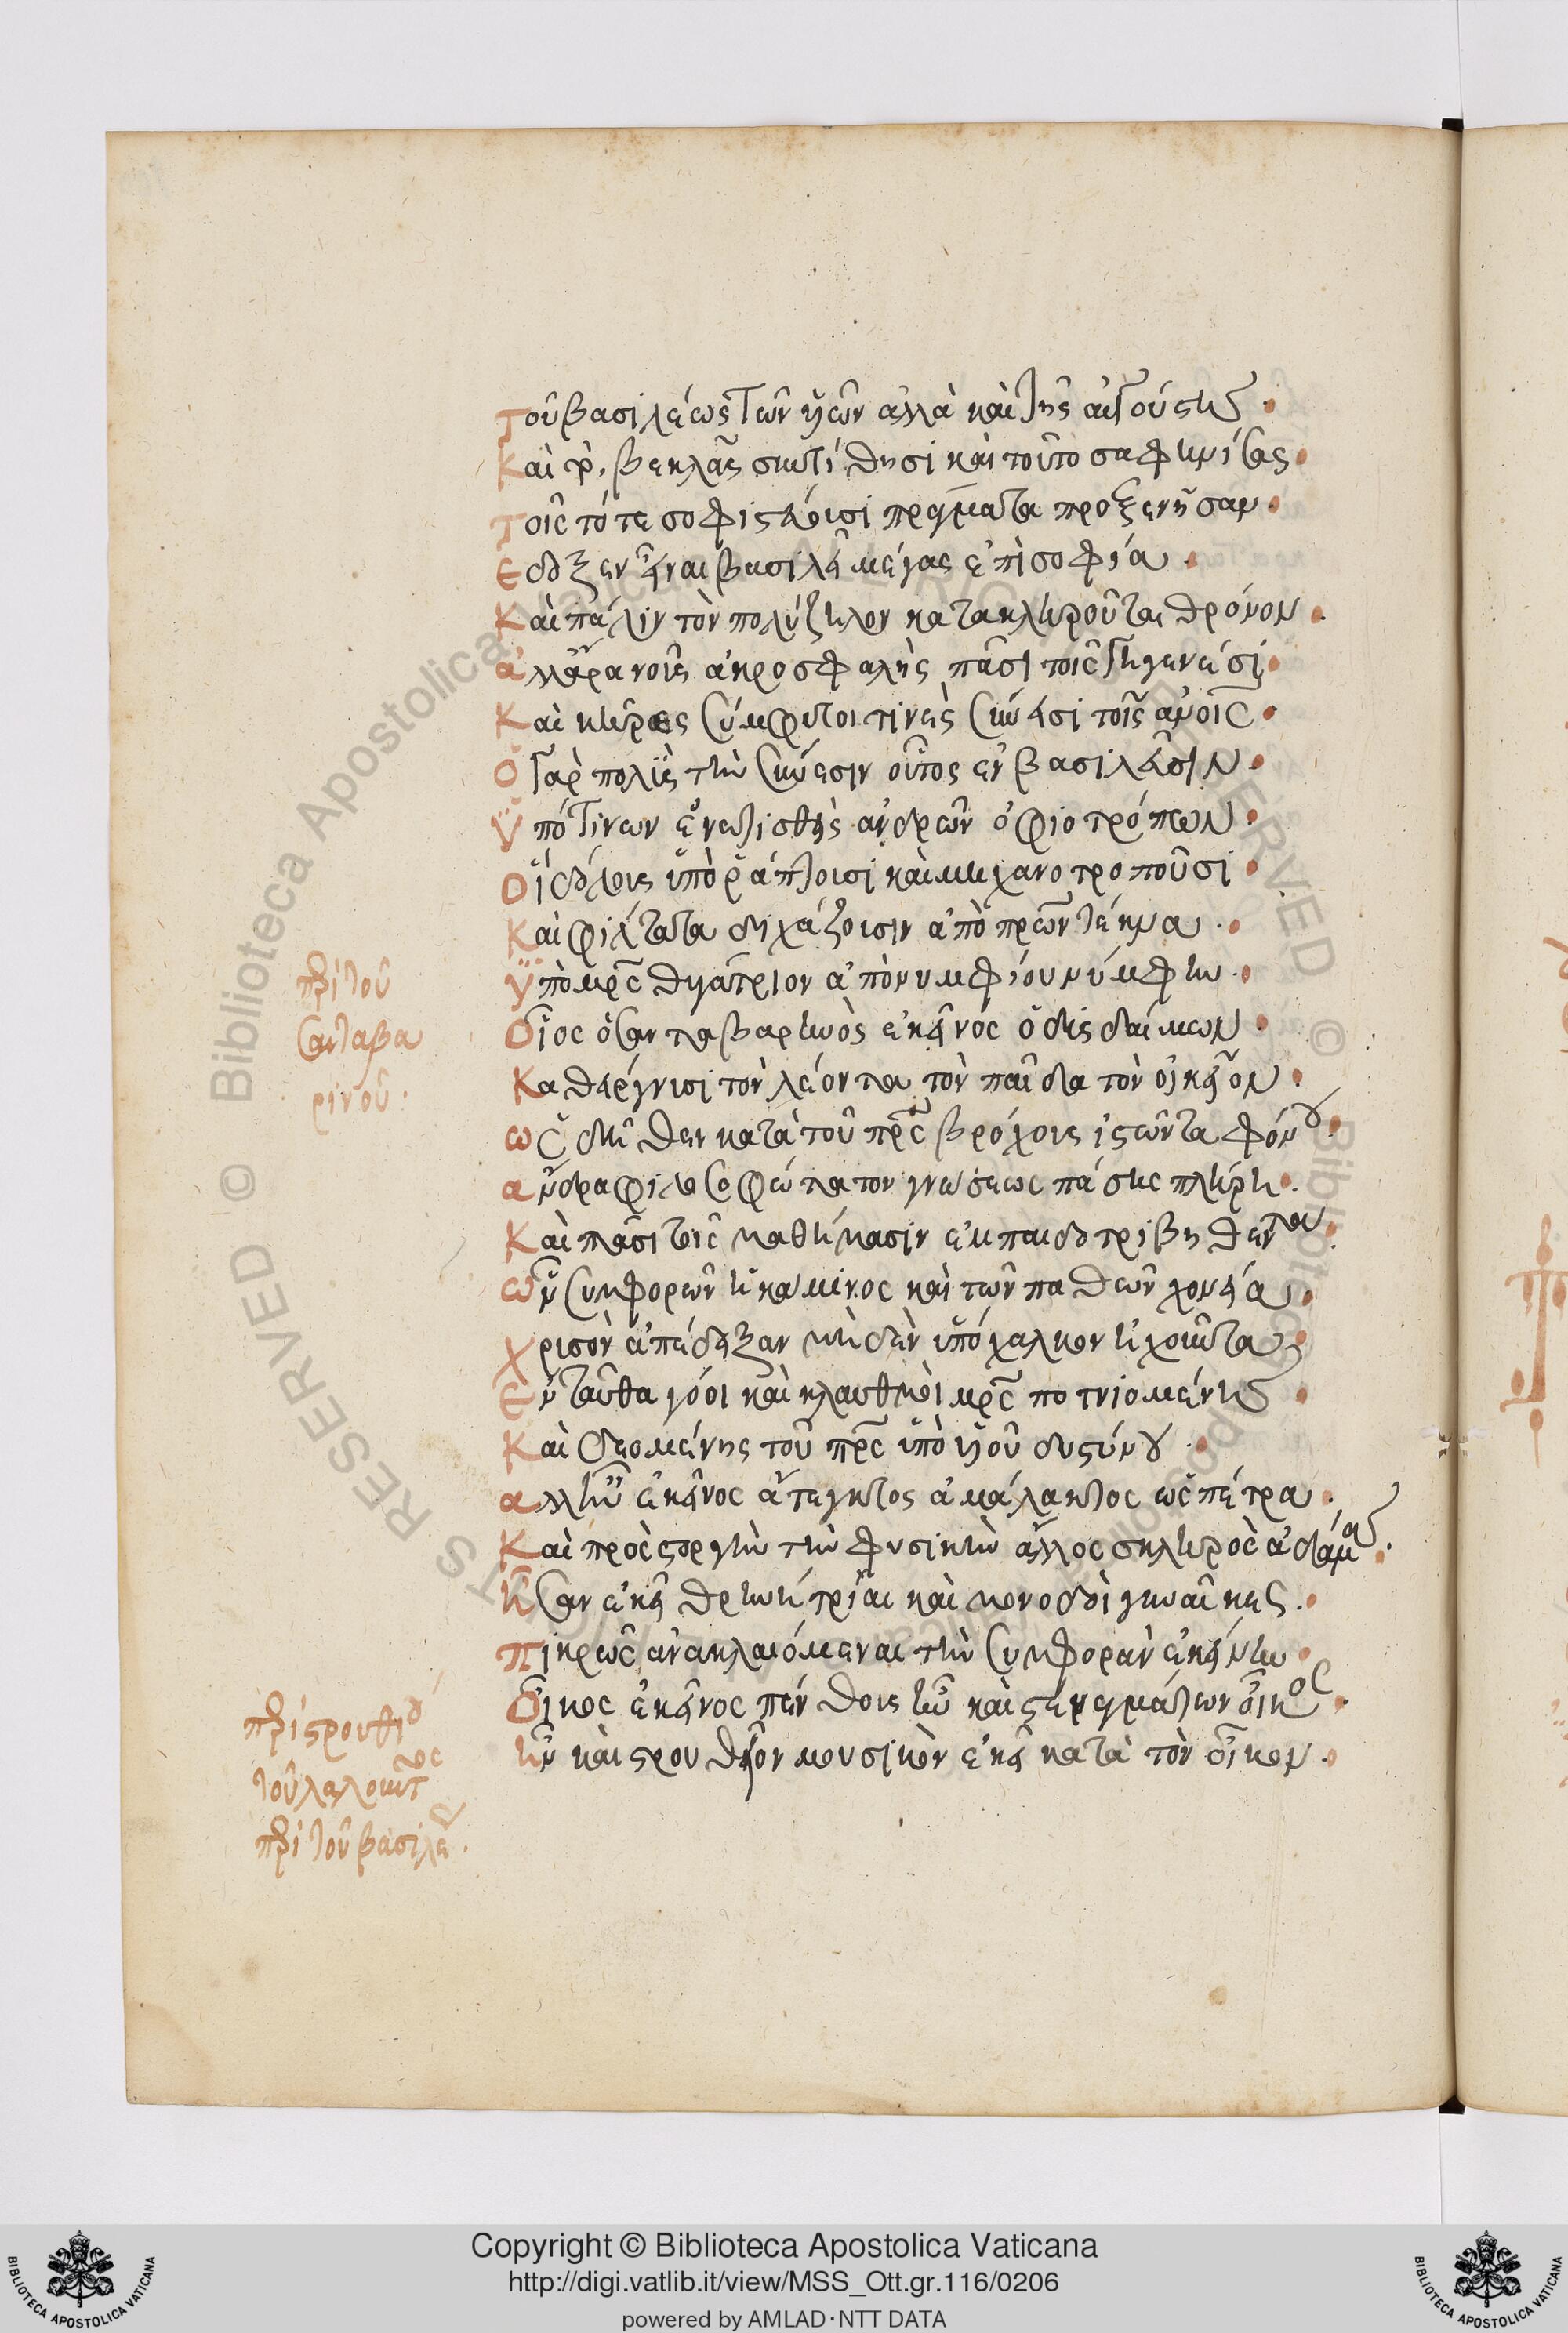 τοῦ βασιλέως τῶν υἱῶν ἀλλὰ καὶ τῆς αὐγούστης
τοῖς τότε σοφιστεύουσι πράγματα προξενῆσαν
ἔδοξεν εἶναι βασιλεῖ μέγας ἐπὶ σοφία
καὶ πάλιν τὸν πολύζηλον κατακληροῦται θρόνον
ἀκροσφαλὴς πᾶσι τοῖς γηγενέσι
καὶ κῆρες σύμφυτοι τινὲς σύνεισι τοῖς ἀνοις
ὁ γὰρ πολὺς τὴν σύνεσιν οὗτος ἐν βασιλεῦσιν
ὑπό τινων ἐνωτισθεὶς ἀνδρῶν ὀφιοτρόπων
οἳ δόλους ὑποῤῥάπτουσι καὶ μηχανοτροποῦσι
καὶ φίλτατα διχάζουσιν ἀπὸ πρων τέκνα
ὑπὸ μρς θυγάτριον ἀπὸ νυμφίου νύμφην
οἷος ὁ σανταβαρηνὸς ἐκεῖνος ὁ δὶς δαίμων
καθείργνυσι τὸν λέοντα τὸν παῖδα τὸν οἰκεῖον
ὡς δῆθεν κατὰ τοῦ πρς βρόχους ἱστῶντα φόνου
ἄνδρα φιλοσοφώτατον γνώσεως πάσης πλήρη
καὶ πᾶσι τοῖς μαθήμασιν ἐμπαιδοτριβηθέντα
ὃν συμφορῶν ἡ κάμινος καὶ τῶν παθῶν χονεία
χρυσὸν ἀπέδειξαν μηδὲν ὑπόχαλκον ἠχοῦντα
ἐνταῦθα γόοι καὶ κλαυθμοὶ μρς ποτνιομένης
καὶ δεομένης τοῦ πρς ὑπὸ υἱοῦ δυστήνου
ἀλλ' ἦν ἐκεῖνος ἄτεγκτος ἀμάλακτος ὡς πέτρα
καὶ πρὸς στοργὴν τὴν φυσικὴν ἄλλος σκληρὸς ἀδάμας
ἦσαν ἐκεῖ θρηνήτριαι καὶ μονοδοὶ γυναῖκες
πικρῶς ἀνακλαιόμεναι τὴν συμφορὰν ἐκείνην
οἶκος ἐκεῖνος πένθους ἦν καὶ στεναγμάτων οἶκος
ἦν καὶ στρουθίον μουσικὸν ἐκεῖ κατὰ τὸν οἶκον
περὶ τοῦ
σανταβα
ρινοῦ
περὶ στρουθίου
τοῦ λαλοῦντος
περὶ τοῦ βασιλέως
Copyright © Biblioteca Apostolica Vaticana
http://digi.vatlib.it/view/MSS_Ott.gr.116/0206
powered by AMLAD·NTT DATA
BIBLIOTECA APOSTOLICA VATICANA
BIBLIOTECA APOSTOLICA VATICANA